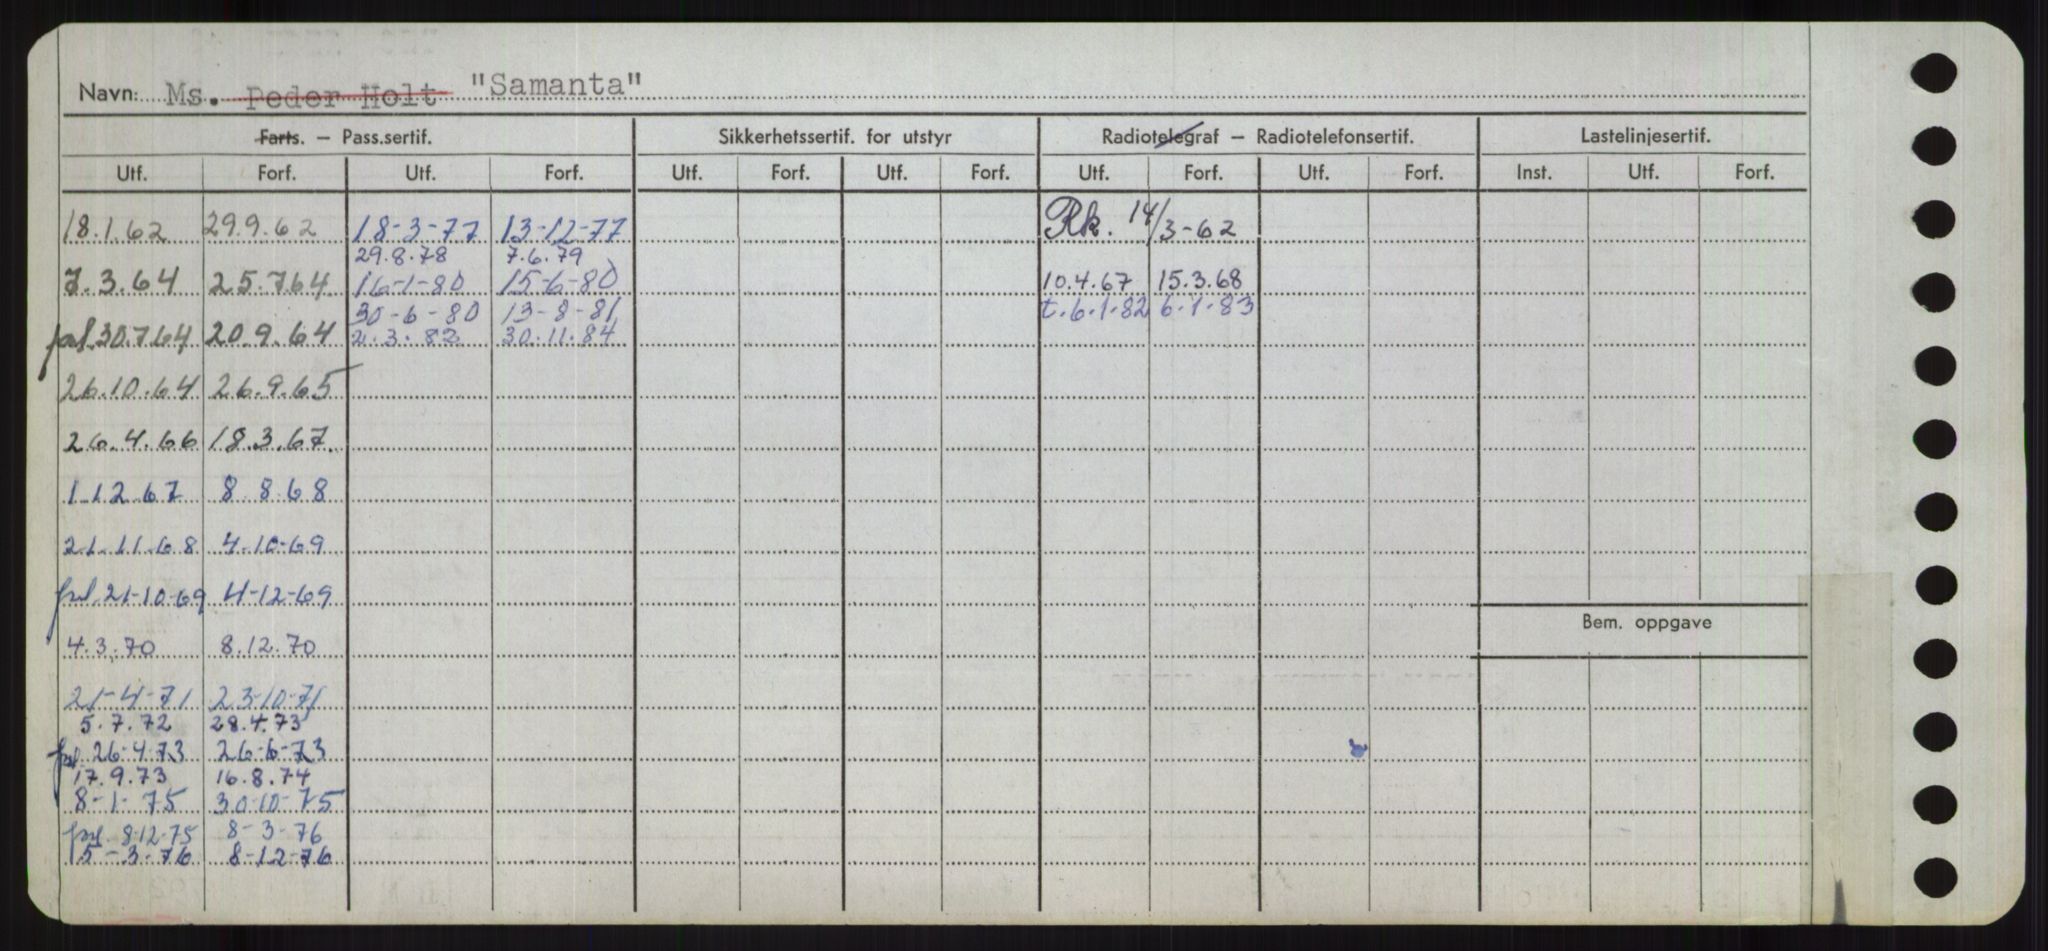 Navn: Ms. Peder Holt "Samanta"
Farts. – Pass.sertif. Sikkerhetssertif. for utstyr Radiotelegraf – Radiotelefonsertif. Lastelinjesertif.
Utf. Forf. Utf. Forf. Utf. Forf. Utf. Forf. Utf. Forf. Utf. Forf. Inst. Utf. Forf.
18.1.62 29.9.62 18-3-77 13-12-77 Rk. 14/3-62
29.8.78 7.6.79
7.3.64 25.7.64 16-1-80 15-6-80 10.4.67 15.3.68
30-6-80 13-8-81 t.6.1.82 6.1.83
30.7.64 20.9.64 2.3.82 30.11.84
26.10.64 26.9.65
26.4.66 18.3.67.
1.12.67 8.8.68
21.11.68 4-10-69
21-10-69 4-12-69
Bem. oppgave
4.3.70 8.12.70
21-4-71 23-10-71
5.7.72 28.4.73
26-4-73 26-6-73
17.9.73 16.8.74
8-1-75 30-10-75
8-12-75 8-3-76
15-3-76 8-12-76